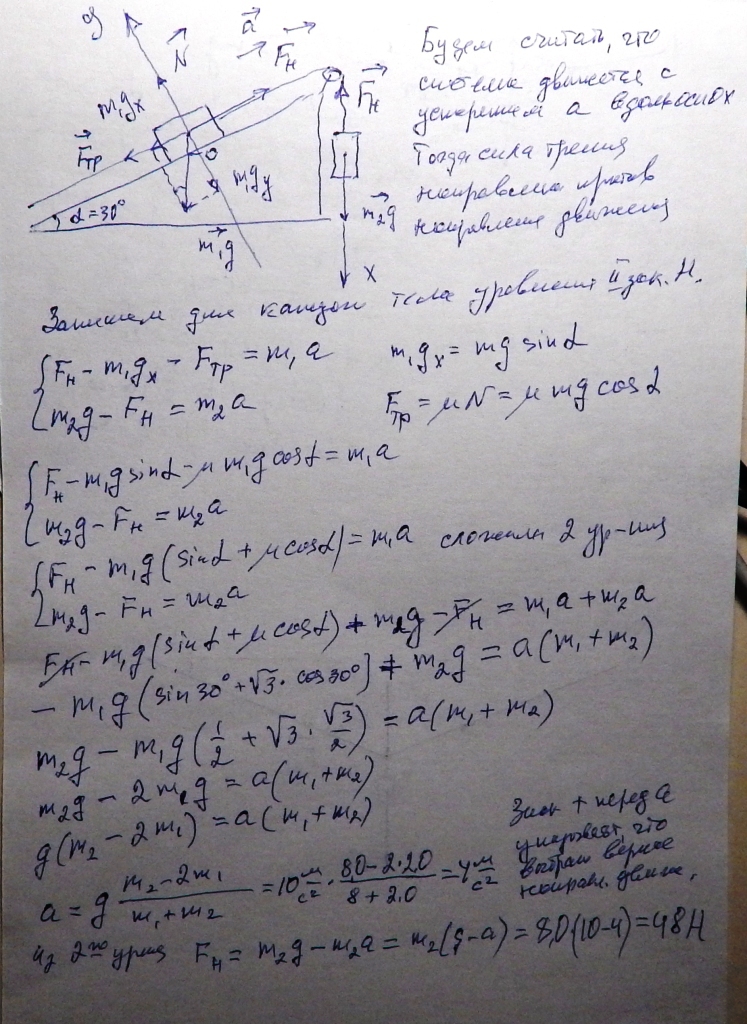 y
N
a
F_н
m₁g_x
F_тр
O
m₁g_y
F_н
α=30°
m₁g
m₂g
x
Будем считать, что
система движется с
ускорением a вдоль оси OX
Тогда сила трения
направлена против
направления движения
Запишем для каждого тела уравнения II зак. Н.
{ F_н − m₁g_x − F_тр = m₁a
m₁g_x = mg sinα
{ m₂g − F_н = m₂a
F_тр = μN = μ mg cosα
{ F_н − m₁g sinα − μ m₁g cosα = m₁a
{ m₂g − F_н = m₂a
{ F_н − m₁g (sinα + μ cosα) = m₁a сложили 2 ур-ния
{ m₂g − F_н = m₂a
F_н − m₁g (sinα + μ cosα) + m₂g − F_н = m₁a + m₂a
− m₁g (sin 30° + √3 · cos 30°) + m₂g = a(m₁ + m₂)
m₂g − m₁g (1/2 + √3 · √3/2) = a(m₁ + m₂)
m₂g − 2m₁g = a(m₁ + m₂)
g(m₂ − 2m₁) = a(m₁ + m₂)
Знак + перед a
указывает, что
выбрали верное
направл. движен.
a = g (m₂ − 2m₁)/(m₁ + m₂) = 10 м/с² · (8,0 − 2·2,0)/(8 + 2,0) = 4 м/с²
из 2го ур-ния F_н = m₂g − m₂a = m₂(g − a) = 8,0(10 − 4) = 48 Н